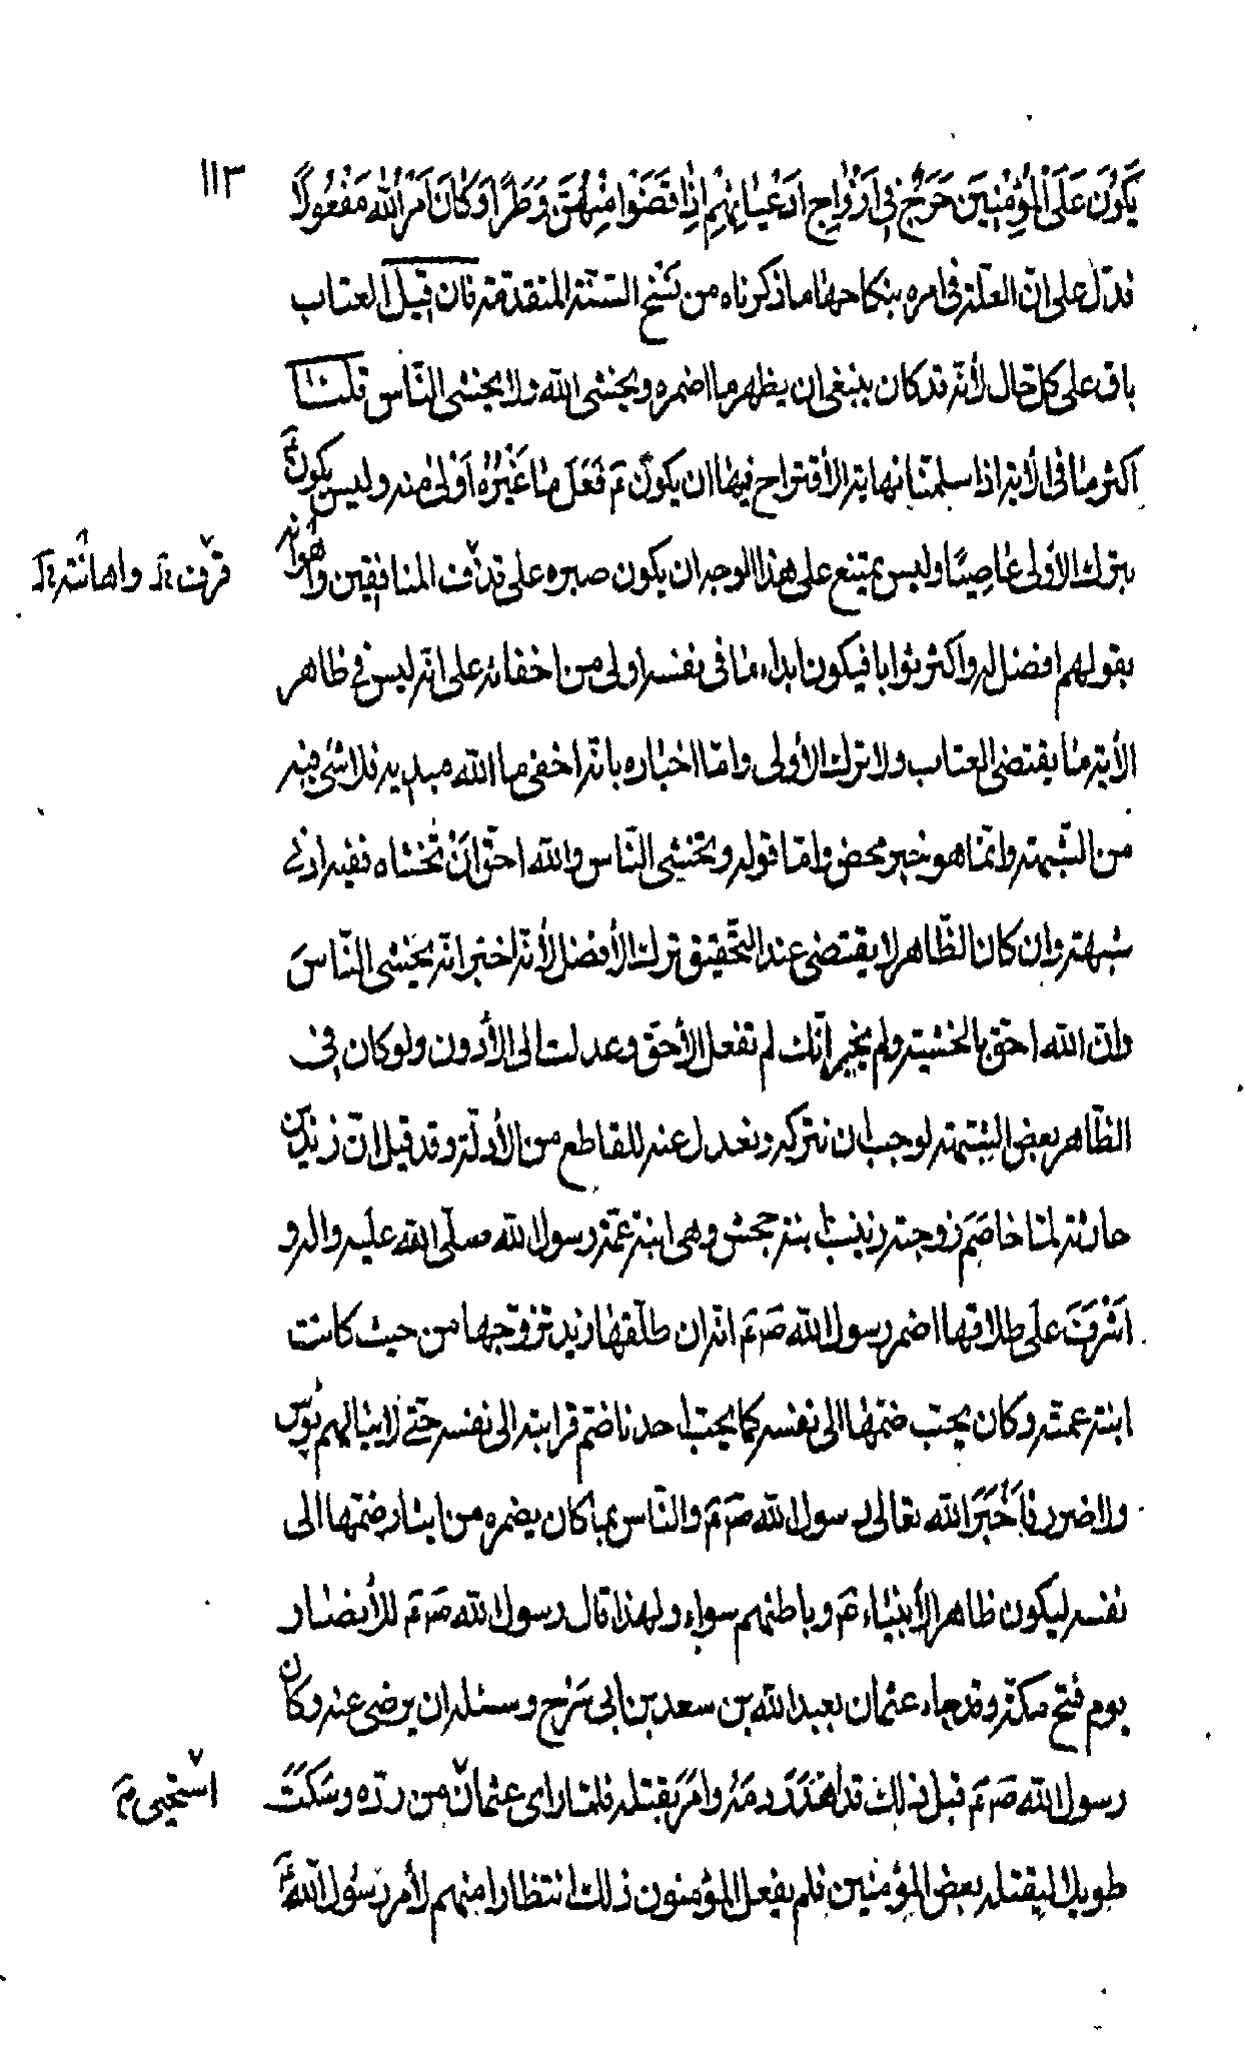 ١١٣
يَكُونَ عَلَى الْمُؤْمِنِينَ حَرَجٌ فِي أَزْوَاجِ أَدْعِيَائِهِمْ إِذَا قَضَوْا مِنْهُنَّ وَطَرًا وَكَانَ أَمْرُ اللهِ مَفْعُولًا
فدلّ على انّ العلّة فى امره بنكاحها ما ذكرناه من نسخ السنّة المتقدّمة فان قيل العتاب
باق على كل حال لأنّه قد كان ينبغى ان يظهر ما اضمره ويخشى الله ولا يخشى النّاس قلنا
اكثر ما فى الأية اذا سلمنا نهاية الأقتراح فيها ان يكون ع فَعَلَ ما غَيْرُهُ أَوْلى منه وليس يكون ع
بترك الأولى عاصِيًا وليس يمتنع على هذا الوجه ان يكون صبره على قذف المنافقين واهوانه
قرفت خ واهانته خ
بقولهم افضل له واكثر ثوابا فيكون ابداء ما فى نفسه اولى من اخفائه على انّه ليس فى ظاهر
الأية ما يقتضى العتاب ولا ترك الأولى وامّا اخباره بانّه اخفى ما الله مبديه فلا شئ فيه
من الشّبهة وانّما هو خبر محض وامّا قوله وتخشى النّاس والله احقّ اَنْ تَخْشاه ففيه ادنى
شبهة وان كان الظّاهر لا يقتضى عند التّحقيق ترك الأفضل لأنّه اخبر انّه يخشى النّاسَ
وانّ الله احقّ بالخشية ولم يخبر انّك لم تفعل الأحقّ وعدلت الى الأدون ولو كان فى
الظّاهر بعض الشّبهة لوجب ان نتركه ونعدل عنه للقاطع من الأدلّة وقد قيل انّ زيد بن
حارثة لمّا خاصَمَ زوجته زينب ابنة جحش وهى ابنة عمّة رسول الله صلّى الله عليه واله و
اَشْرَفَ على طلاقها اضمر رسول الله ص ع انّه ان طلّقها زيد تزوّجها من حيث كانت
ابنة عمّته وكان يحبّ ضمّها الى نفسه كما يحبّ احدنا ضم قرابته الى نفسه حتّى لا ينالهم بؤس
ولا ضرر فاَخْبَرَ الله تعالى رسول الله ص ع والنّاس بما كان يضمره من ايثار ضمّها الى
نفسه ليكون ظاهر الأنبياء ع وباطنهم سواء ولهذا قال رسول الله ص ع للأنصار
يوم فتح مكّة وقد جاء عثمان بعبد الله بن سعد بن ابى سَرْح وسئله ان يرضى عنه وكان
رسول الله ص ع قبل ذلك قد اهدَرَ دمَهُ وامَرَ بقتله فلمّا راى عثمان من ردّه وسَكَتَ
استحيى م
طويلا ليقتله بعض المؤمنين فلم يفعل المؤمنون ذلك انتظارا منهم لأمر رسول الله ع